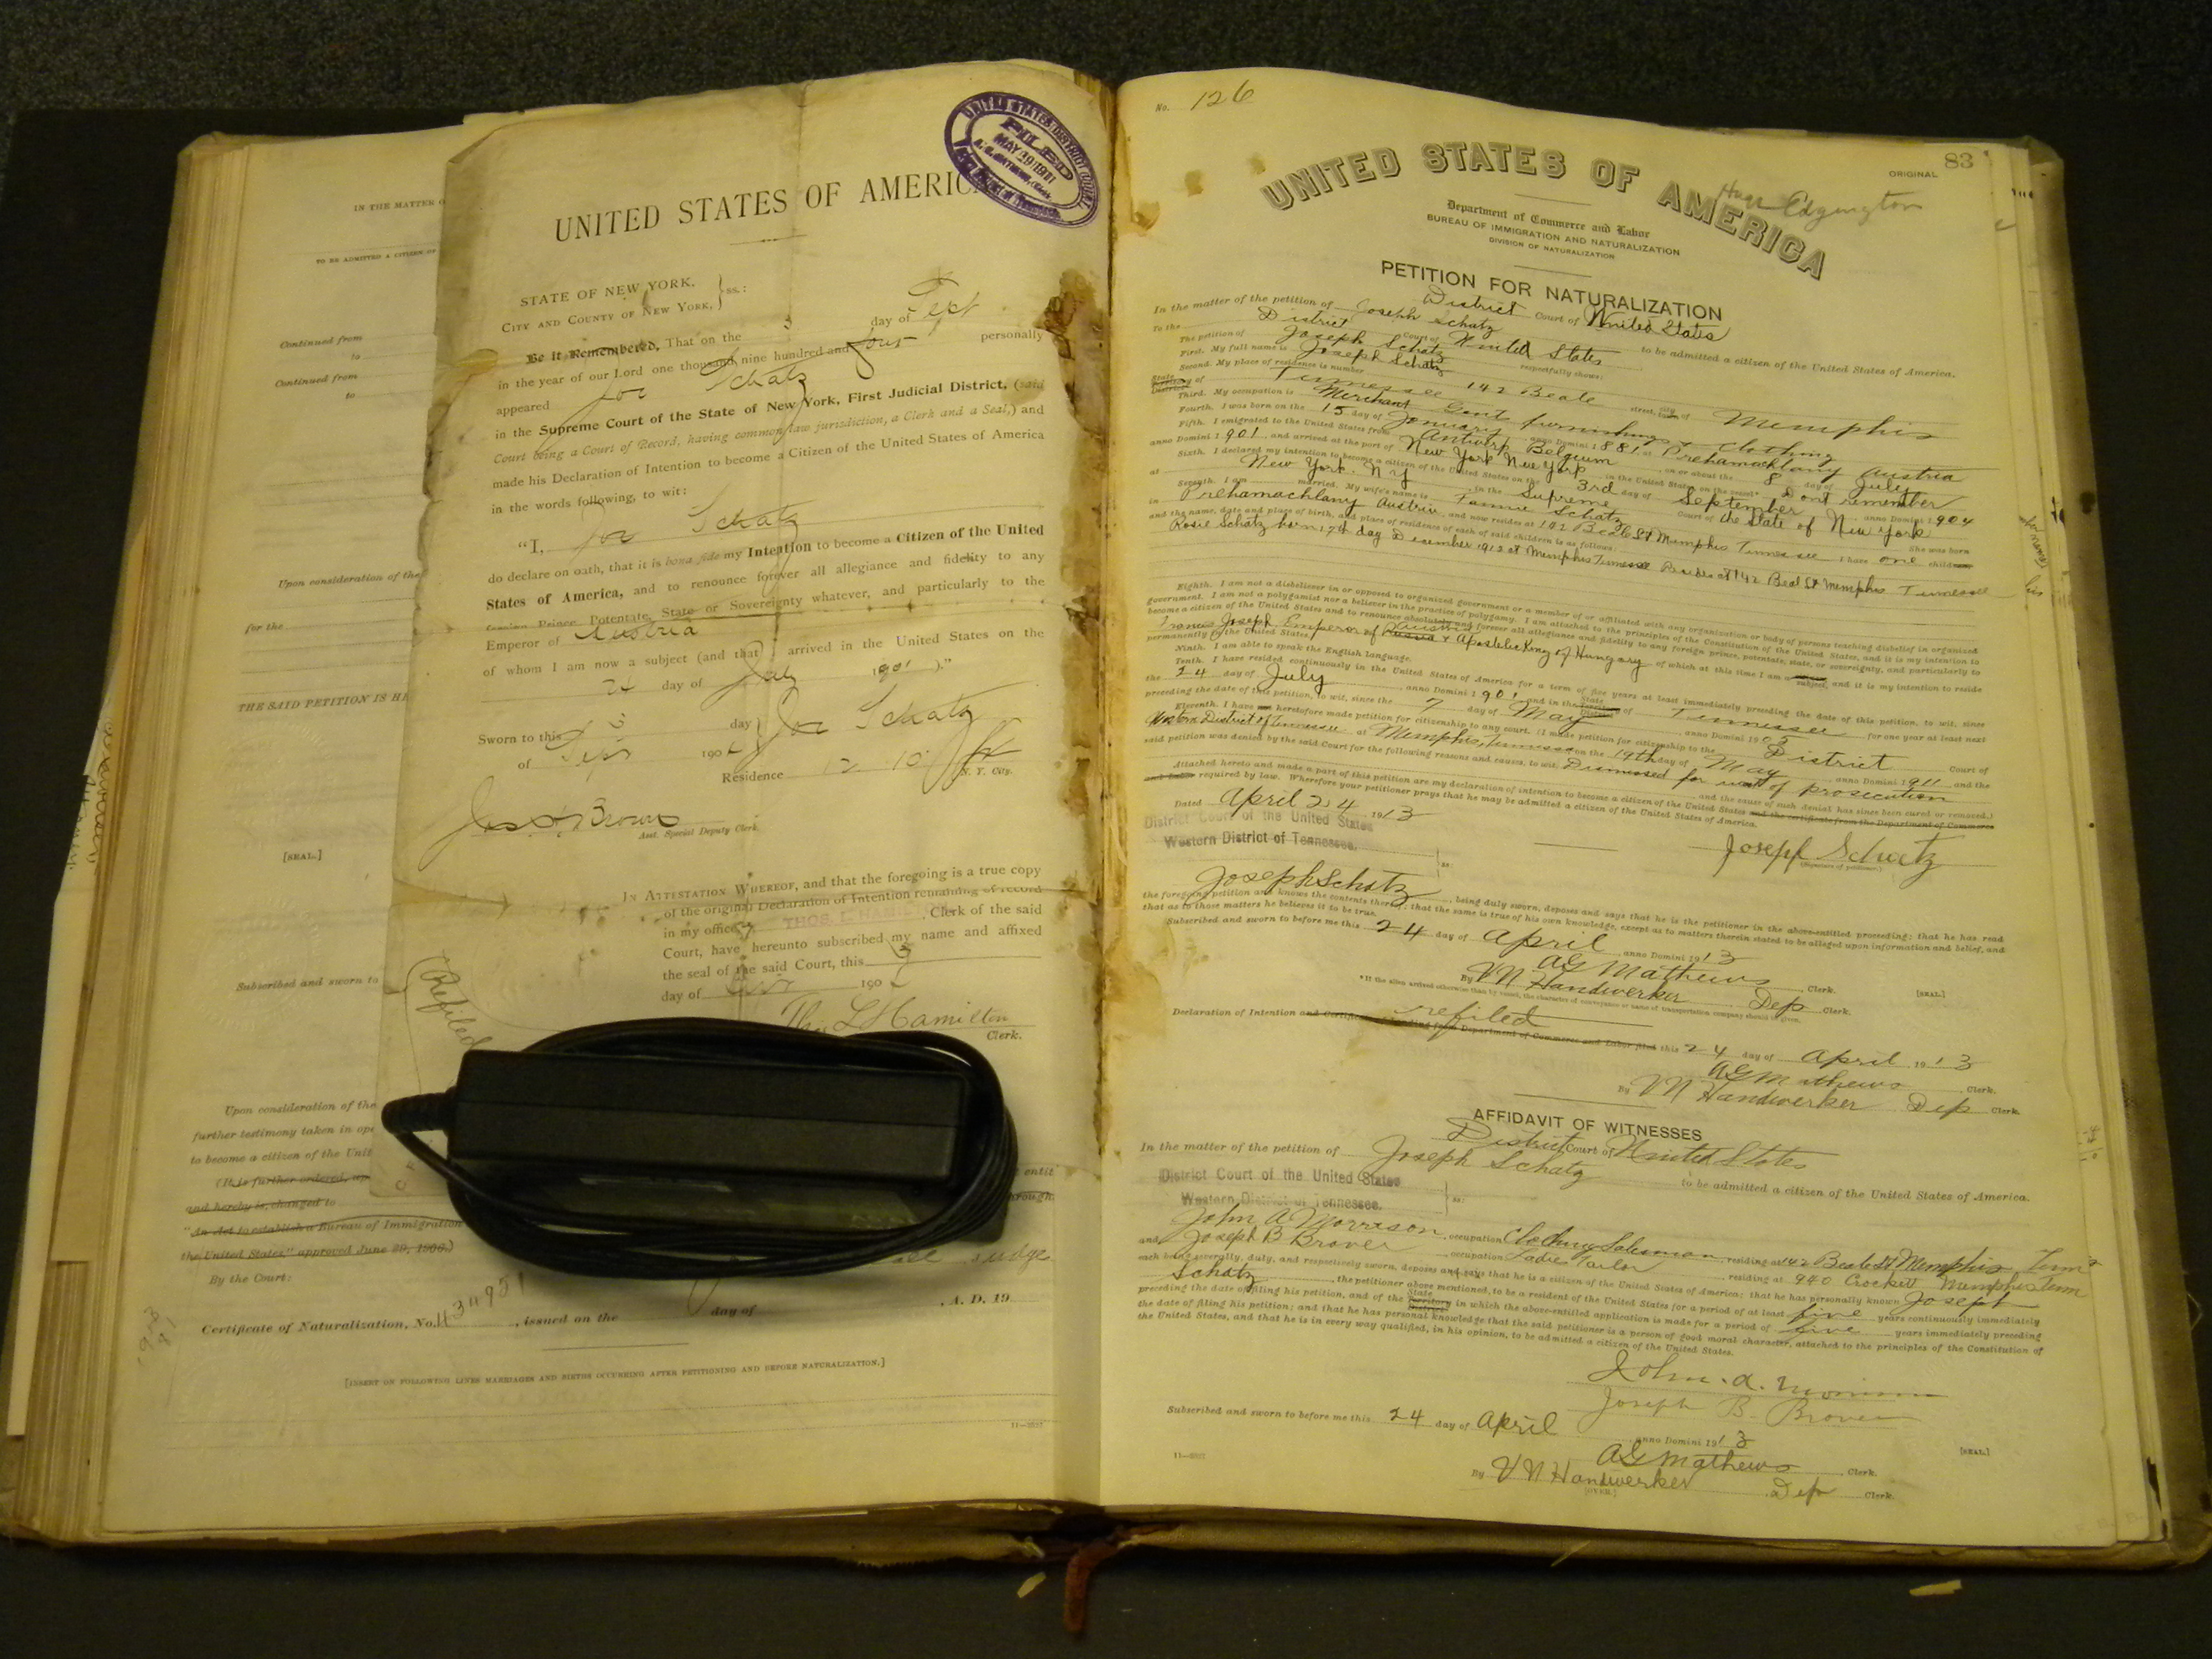 IN THE MATTER O
TO BE ADMITTED A CITIZEN OF
Continued from
to
Continued from
to
Upon consideration of the
for the
THE SAID PETITION IS HE
[SEAL.]
Subscribed and sworn to
Upon consideration of the
further testimony taken in ope
to become a citizen of the Unit
(It is further ordered, up
and hereby is, changed to
"An Act to establish a Bureau of Immigration
the United States," approved June 29, 1906.)
By the Court:
Certificate of Naturalization, No. 434951, issued on the day of , A. D. 19
[INSERT ON FOLLOWING LINES MARRIAGES AND BIRTHS OCCURRING AFTER PETITIONING AND BEFORE NATURALIZATION.]
UNITED STATES DISTRICT COURT
FILED
MAY 19 1911
UNITED STATES OF AMERICA
STATE OF NEW YORK,
CITY AND COUNTY OF NEW YORK, } ss.:
Be it Remembered, That on the 3 day of Sept
in the year of our Lord one thousand nine hundred and four personally
appeared Joe Schatz
in the Supreme Court of the State of New York, First Judicial District, (said
Court being a Court of Record, having common law jurisdiction, a Clerk and a Seal,) and
made his Declaration of Intention to become a Citizen of the United States of America
in the words following, to wit:
"I, Joe Schatz
do declare on oath, that it is bona fide my Intention to become a Citizen of the United
States of America, and to renounce forever all allegiance and fidelity to any
foreign Prince, Potentate, State or Sovereignty whatever, and particularly to the
Emperor of Austria
of whom I am now a subject (and that I arrived in the United States on the
24 day of July 1901 )."
Sworn to this 3 day } Joe Schatz
of Sept 190
Residence N. Y. City.
Jas. A. Brown
Asst. Special Deputy Clerk.
IN ATTESTATION WHEREOF, and that the foregoing is a true copy
of the original Declaration of Intention remaining of record
in my office, THOS. L. HAMILTON, Clerk of the said
Court, have hereunto subscribed my name and affixed
the seal of the said Court, this 3
day of 190
Thos L Hamilton
Clerk.
Refiled
Judge
No. 126
83
ORIGINAL
UNITED STATES OF AMERICA
Hugh Edgington
Department of Commerce and Labor
BUREAU OF IMMIGRATION AND NATURALIZATION
DIVISION OF NATURALIZATION
PETITION FOR NATURALIZATION
District Court of United States
In the matter of the petition of Joseph Schatz to be admitted a citizen of the United States of America.
To the District Court of United States
The petition of Joseph Schatz respectfully shows:
First. My full name is Joseph Schatz
Second. My place of residence is number 142 Beale street, city of Memphis
State of Tennessee
Third. My occupation is Merchant Gents furnishings & Clothing
Fourth. I was born on the 15 day of January, anno Domini 1881, at Prehamachlany Austria
Fifth. I emigrated to the United States from Antwerp Belgium, on or about the 8 day of July
anno Domini 1901, and arrived at the port of New York New York, in the United States, on the vessel* Dont remember
Sixth. I declared my intention to become a citizen of the United States on the 3rd day of September, anno Domini 1904
at New York. N.Y, in the Supreme Court of the State of New York
Seventh. I am married. My wife's name is Fannie Schatz She was born
in Prehamachlany Austria and now resides at 142 Beale St Memphis Tennessee I have one children
and the name, date and place of birth, and place of residence of each of said children is as follows:
Rosie Schatz born 17th day December 1912 at Memphis Tennessee Resides at 142 Beal St Memphis Tennessee
Eighth. I am not a disbeliever in or opposed to organized government or a member of or affiliated with any organization or body of persons teaching disbelief in organized
government. I am not a polygamist nor a believer in the practice of polygamy. I am attached to the principles of the Constitution of the United States, and it is my intention to
become a citizen of the United States and to renounce absolutely and forever all allegiance and fidelity to any foreign prince, potentate, state, or sovereignty, and particularly to
Francis Joseph, Emperor of Austria & Apostolic King of Hungary of which at this time I am a subject, and it is my intention to reside
permanently in the United States.
Ninth. I am able to speak the English language.
Tenth. I have resided continuously in the United States of America for a term of five years at least immediately preceding the date of this petition, to wit, since
the 24 day of July, anno Domini 1901 and in the State of Tennessee for one year at least next
preceding the date of this petition, to wit, since the 7 day of May, anno Domini 1905
Eleventh. I have heretofore made petition for citizenship to any court. (I made petition for citizenship to the District Court of
Western District of Tennessee at Memphis, Tennessee on the 19th day of May, anno Domini 1911 and the
said petition was denied by the said Court for the following reasons and causes, to wit, Dismissed for want of prosecution
and the cause of such denial has since been cured or removed.)
Attached hereto and made a part of this petition are my declaration of intention to become a citizen of the United States and the certificate from the Department of Commerce
and Labor required by law. Wherefore your petitioner prays that he may be admitted a citizen of the United States of America.
Dated April 24 1913
Joseph Schatz
(Signature of petitioner.)
District Court of the United States
Western District of Tennessee. } ss:
Joseph Schatz, being duly sworn, deposes and says that he is the petitioner in the above-entitled proceeding; that he has read
the foregoing petition and knows the contents thereof; that the same is true of his own knowledge, except as to matters therein stated to be alleged upon information and belief, and
that as to those matters he believes it to be true.
Subscribed and sworn to before me this 24 day of April, anno Domini 1913
AG Mathews, Clerk.
[SEAL.]
By VN Handwerker Dep Clerk.
*If the alien arrived otherwise than by vessel, the character of conveyance or name of transportation company should be given.
refiled
Declaration of Intention and Certificate of Landing from Department of Commerce and Labor filed this 24 day of April, 1913
AG Mathews, Clerk.
By VN Handwerker Dep Clerk.
AFFIDAVIT OF WITNESSES
District Court of United States
In the matter of the petition of Joseph Schatz to be admitted a citizen of the United States of America.
District Court of the United States
Western District of Tennessee. } ss:
John A Morrison, occupation Clothing Salesman, residing at 142 Beale St Memphis Tenn
and Joseph B Brover, occupation Ladies Tailor, residing at 940 Crockett Memphis Tenn
each being severally, duly, and respectively sworn, deposes and says that he is a citizen of the United States of America; that he has personally known Joseph
Schatz, the petitioner above mentioned, to be a resident of the United States for a period of at least five years continuously immediately
preceding the date of filing his petition, and of the State in which the above-entitled application is made for a period of five years immediately preceding
the date of filing his petition; and that he has personal knowledge that the said petitioner is a person of good moral character, attached to the principles of the Constitution of
the United States, and that he is in every way qualified, in his opinion, to be admitted a citizen of the United States.
John. A. Morrison
Joseph B. Brover
Subscribed and sworn to before me this 24 day of April, anno Domini 1913
[SEAL.]
AG Mathews, Clerk.
By VN Handwerker Dep Clerk.
(OVER.)